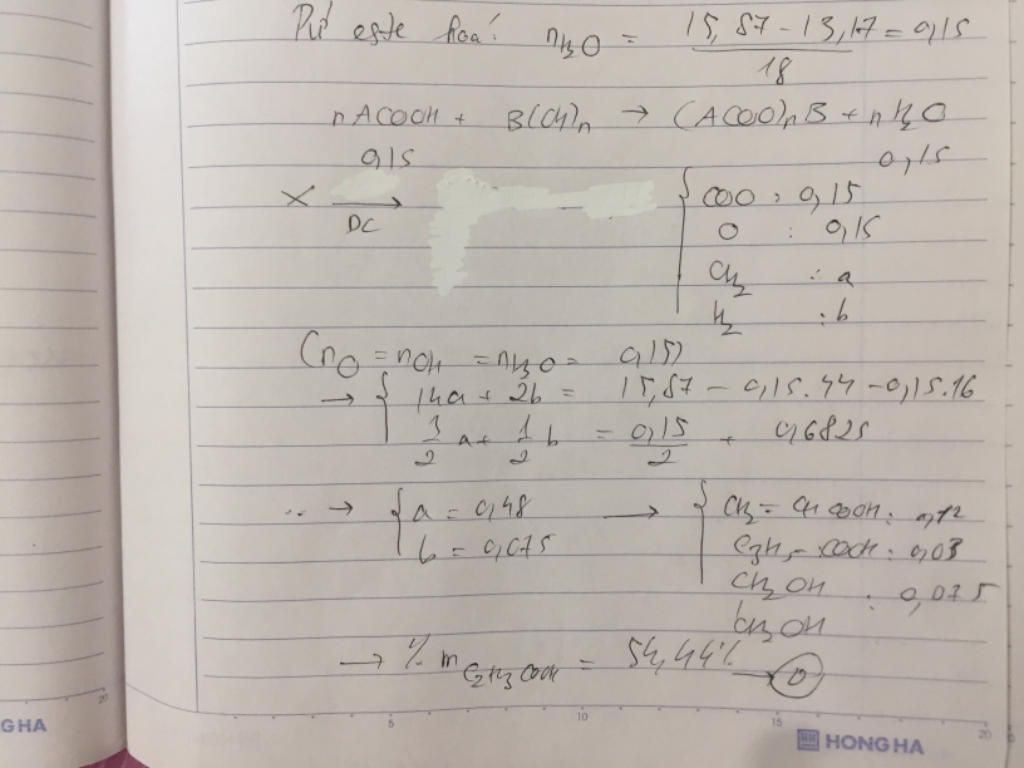 Pứ este hoá: nH2O = (15,87 - 13,17)/18 = 0,15
nACOOH + B(OH)n → (ACOO)nB + nH2O
0,15 0,15
X → ĐC { COO : 0,15
O : 0,15
CH2 : a
H2 : b
(nO = nOH = nH2O = 0,15)
→ { 14a + 2b = 15,87 - 0,15.44 - 0,15.16
3/2 a + 1/2 b = 0,15/2 + 0,6825
.. → { a = 0,48 → { CH2 = CHCOOH : 0,12
b = 0,075 C3H5 - COOH : 0,03
CH2OH : 0,075
CH2OH
→ % m C2H3COOH = 54,44% → D
5 10 15 20
HONG HA
20
GHA